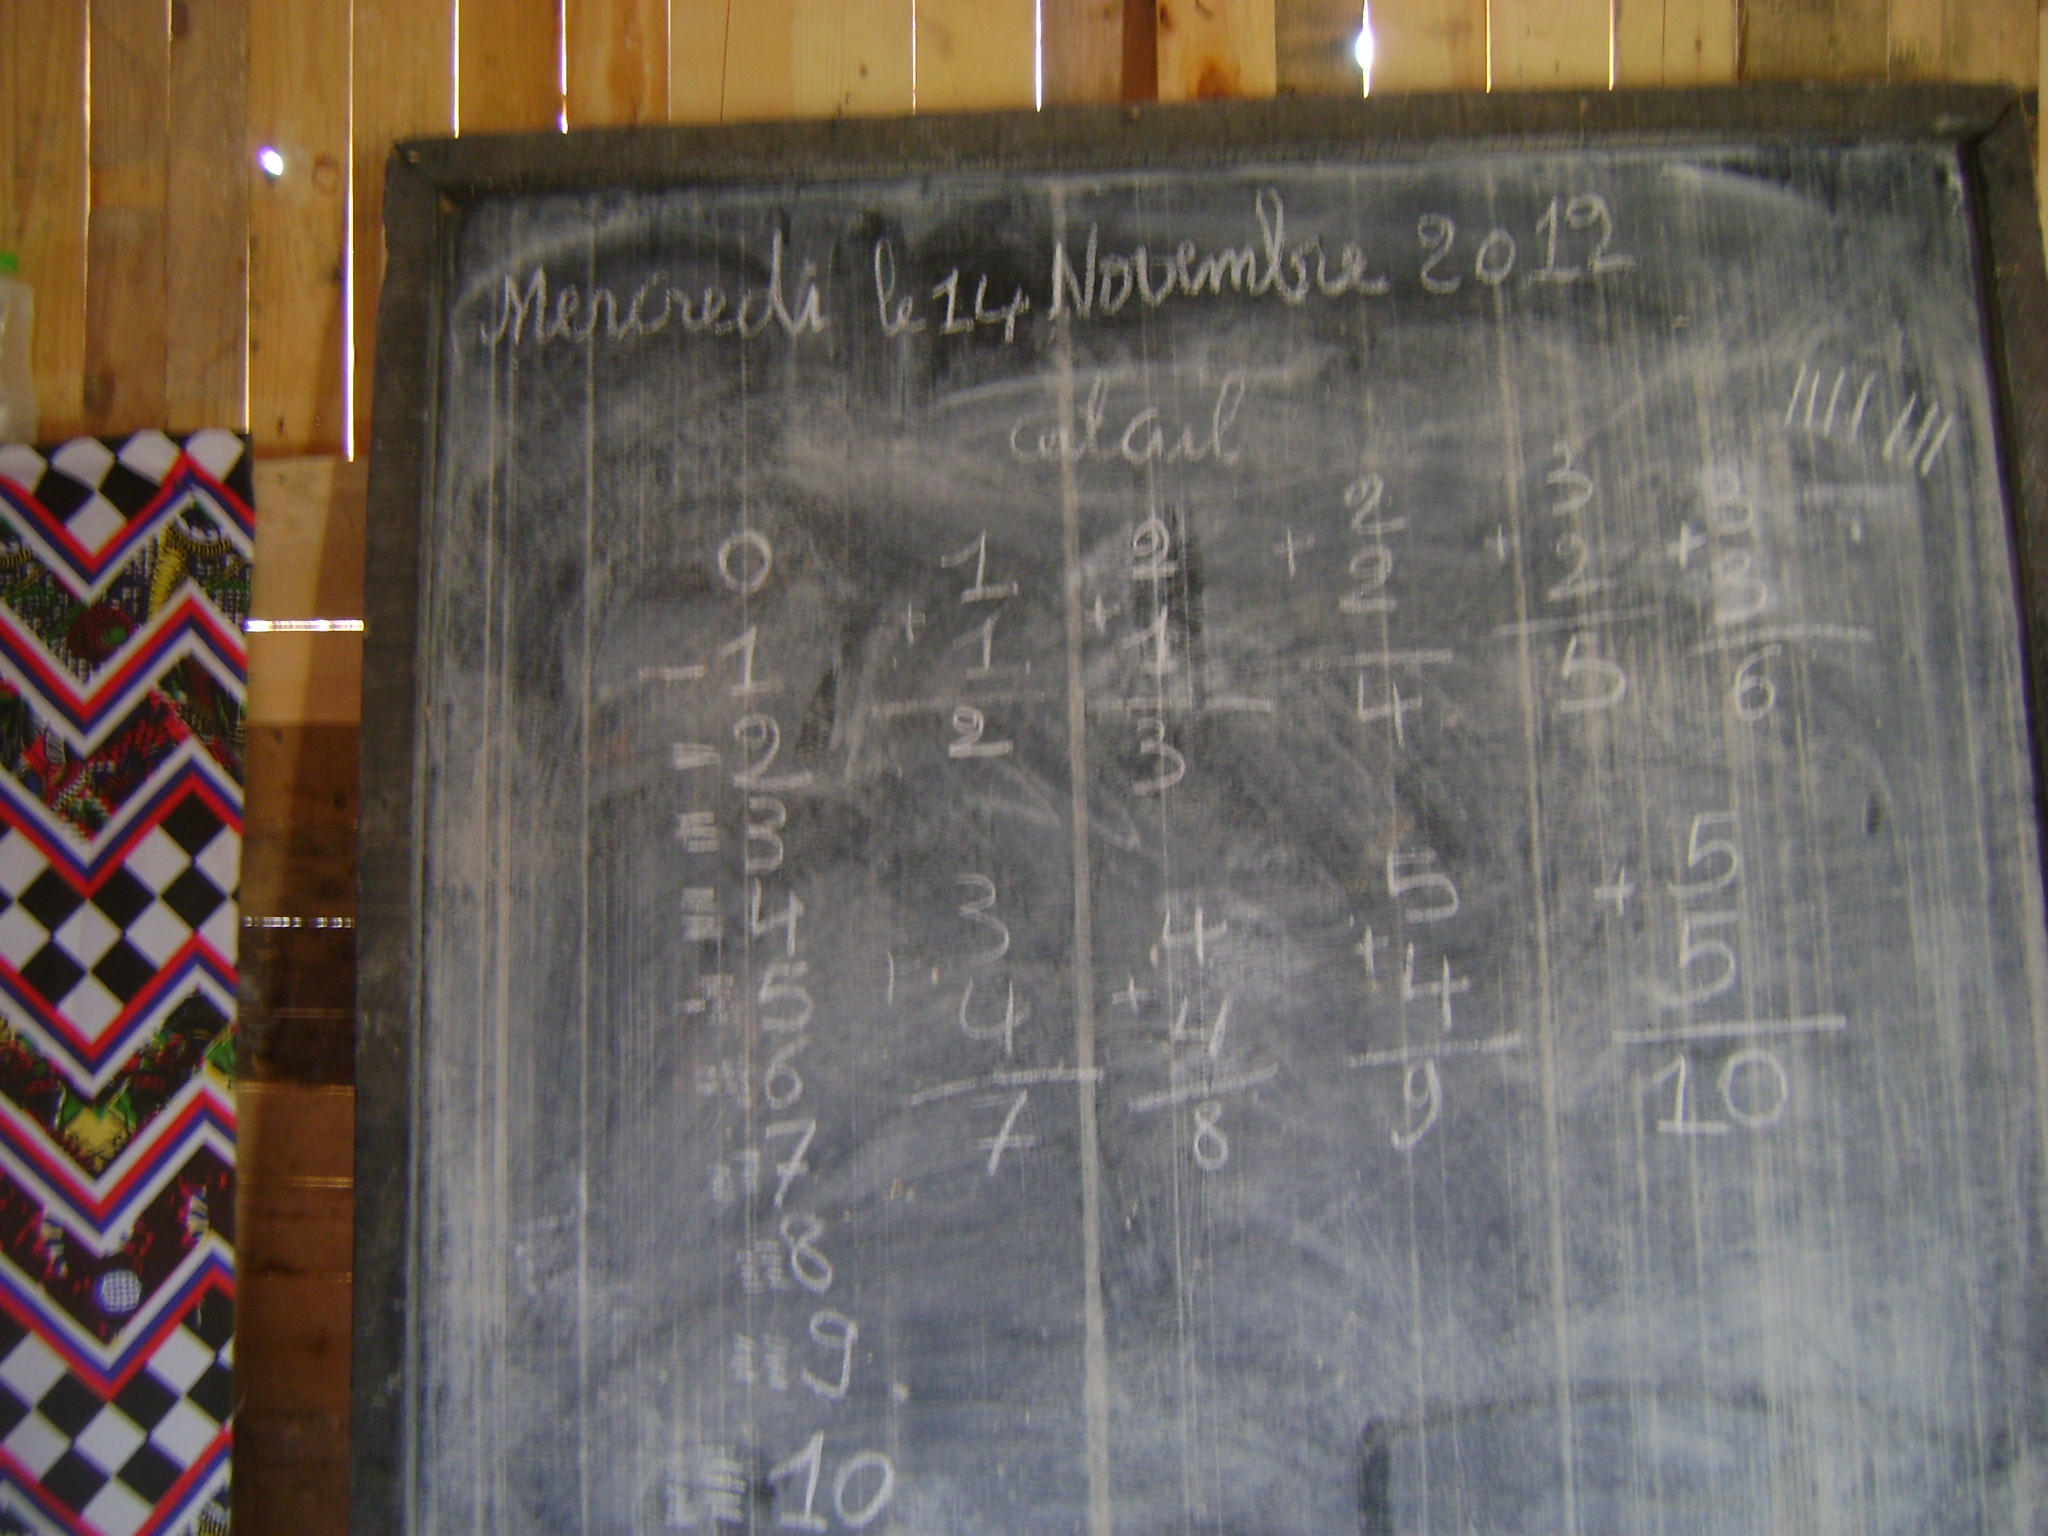 Mercredi le 14 Novembre 2012
calcul
0
1
2
3
4
5
6
7
8
9
10
1
+ 1
2
2
+ 1
3
2
+ 2
4
3
+ 2
5
3
+ 3
6
3
+ 4
7
4
+ 4
8
5
+ 4
9
5
+ 5
10